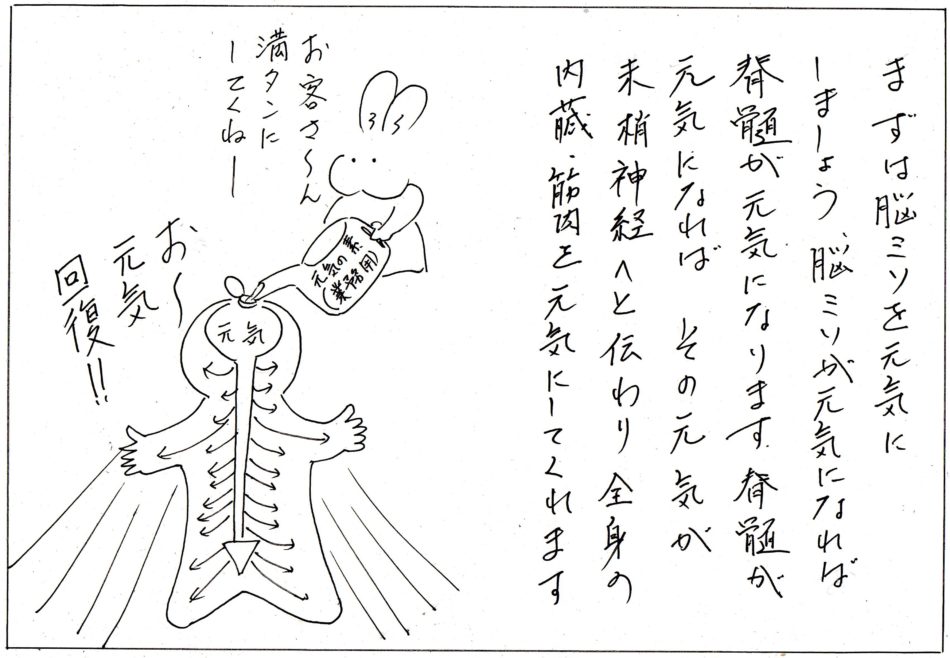 まずは脳ミソを元気に
しましょう、脳ミソが元気になれば
脊髄が元気になります。脊髄が
元気になれば その元気が
末梢神経へと伝わり全身の
内臓、筋肉を元気にしてくれます
お客さ〜ん
満タンに
してくねー
元気の素
(業務用)
元気
お〜
元気
回復!!